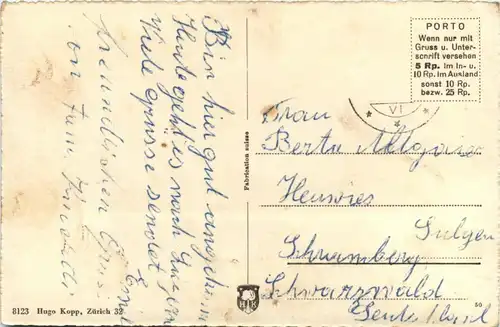 Bin hier gut angekommen
Heute geht es nach
Viele Grüsse sendet
Emil
freundlichen Gruss
von
PORTO
Wenn nur mit
Gruss u. Unter-
schrift versehen
5 Rp. im In- u.
10 Rp. im Ausland
sonst 10 Rp.
bezw. 25 Rp.
VI
Frau
Berta
Heuwies
Sulgen
Schramberg
Schwarzwald
Fabrication suisse
8123 Hugo Kopp, Zürich 32
50